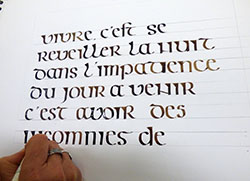 vivre, c'est se
reveiller la nuit
dans l'impatience
du jour a venir
c'est avoir des
insomnies de